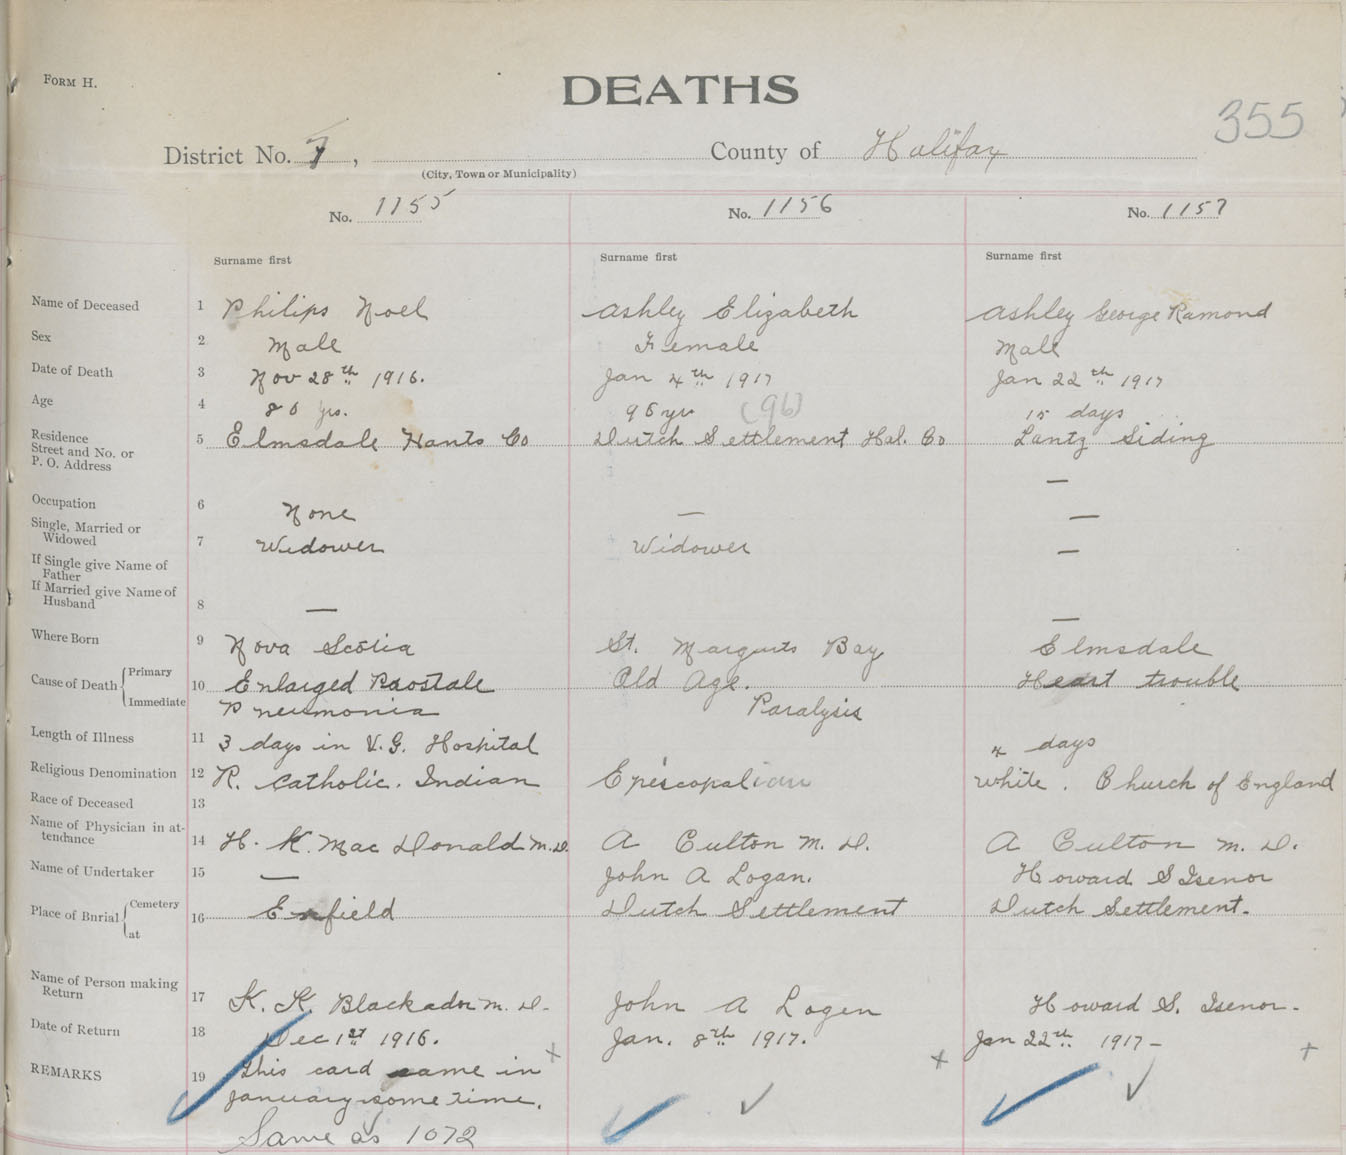 FORM H.
DEATHS
355
District No. 7, County of Halifax
(City, Town or Municipality)
No. 1155 No. 1156 No. 1157
Surname first Surname first Surname first
Name of Deceased 1 Philips Noel Ashley Elizabeth Ashley George Ramond
Sex 2 Male Female Male
Date of Death 3 Nov 28th 1916. Jan 4th 1917 Jan 22th 1917
Age 4 80 yrs. 96 yrs (96) 15 days
Residence 5 Elmsdale Hants Co Dutch Settlement Hal. Co Lantz Siding
Street and No. or
P. O. Address —
Occupation 6 None — —
Single, Married or
Widowed 7 Widower Widower —
If Single give Name of
Father
If Married give Name of
Husband 8 — —
Where Born 9 Nova Scotia St. Marguts Bay Elmsdale
Cause of Death { Primary 10 Enlarged Prostale Old Age. Heart trouble
Immediate Pneumonia Paralysis
Length of Illness 11 3 days in V.G. Hospital 4 days
Religious Denomination 12 R. Catholic. Indian Episcopalian White. Church of England
Race of Deceased 13
Name of Physician in at-
tendance 14 H. K. Mac Donald M.D. A Culton M. D. A Culton M. D.
Name of Undertaker 15 — John A Logan. Howard S Isenor
Place of Burial { Cemetery 16 Enfield Dutch Settlement Dutch Settlement.
at
Name of Person making
Return 17 K. K. Blackadar M. D. John A Logen Howard S. Isenor.
Date of Return 18 Dec 1st 1916. Jan. 8th 1917. Jan 22th 1917–
REMARKS 19 This card came in
January some time.
Same as 1072